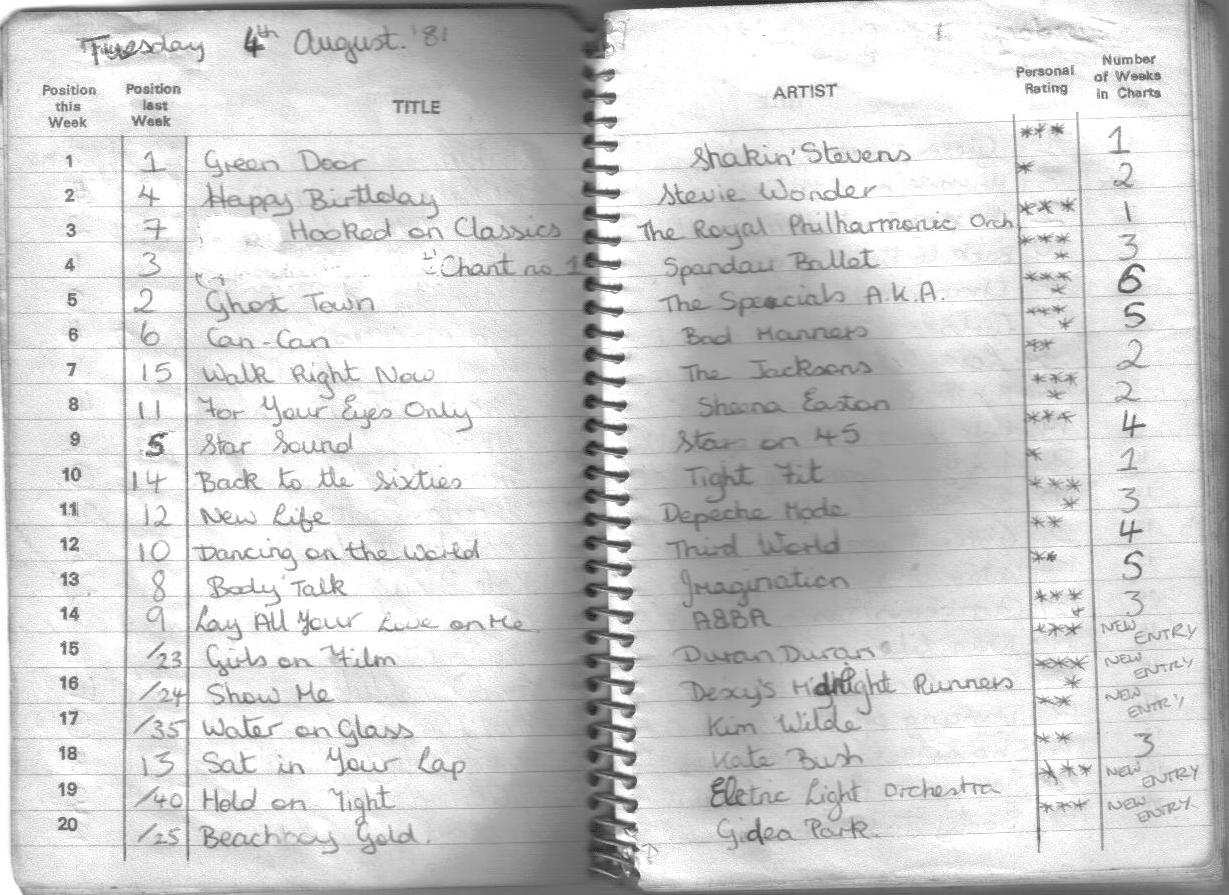 Tuesday 4th August. '81
Position this Week Position last Week TITLE ARTIST Personal Rating Number of Weeks in Charts
1 1 Green Door Shakin' Stevens *** 1
2 4 Happy Birthday Stevie Wonder * 2
3 7 Hooked on Classics The Royal Philharmonic Orch *** 1
4 3 Chant no. 1 Spandau Ballet **** 3
5 2 Ghost Town The Specials A.K.A. **** 6
6 6 Can-Can Bad Manners **** 5
7 15 Walk Right Now The Jacksons ** 2
8 11 For Your Eyes Only Sheena Easton **** 2
9 5 Star Sound Stars on 45 *** 4
10 14 Back to the Sixties Tight Fit * 1
11 12 New Life Depeche Mode **** 3
12 10 Dancing on the World Third World ** 4
13 8 Body Talk Imagination ** 5
14 9 Lay All Your Love on Me ABBA **** 3
15 /23 Girls on Film Duran Duran *** NEW ENTRY
16 /24 Show Me Dexy's Midnight Runners **** NEW ENTRY
17 /35 Water on Glass Kim Wilde ** NEW ENTRY
18 13 Sat in Your Lap Kate Bush ** 3
19 /40 Hold on Tight Eletric Light Orchestra *** NEW ENTRY
20 /25 Beachboy Gold. Gidea Park. *** NEW ENTRY.